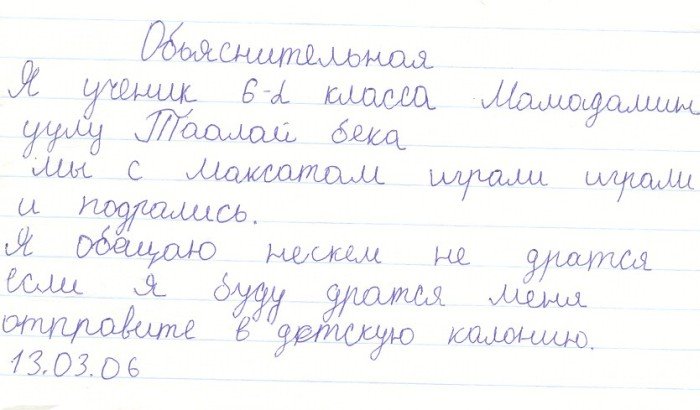 Обьяснительная
Я ученик 6-д класса Мамадамин
уулу Таалай бека
мы с Максатам играли играли
и подрались.
Я обащаю нескем не дратся
если я буду дратся меня
отправите в детскую калонию.
13.03.06